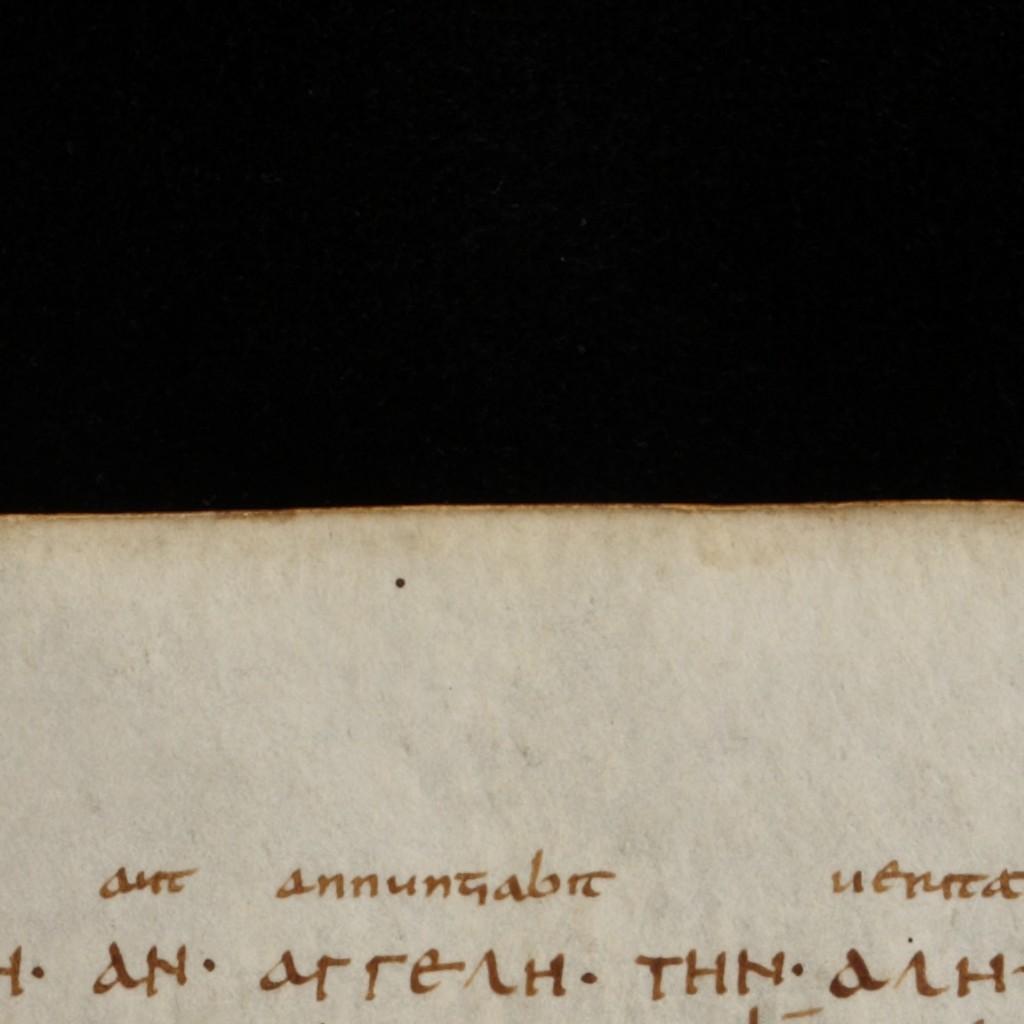 aut annuntiabit uerita
Η· ΑΝ· ΑΓΓΕΛΗ· ΤΗΝ· ΑΛΗ